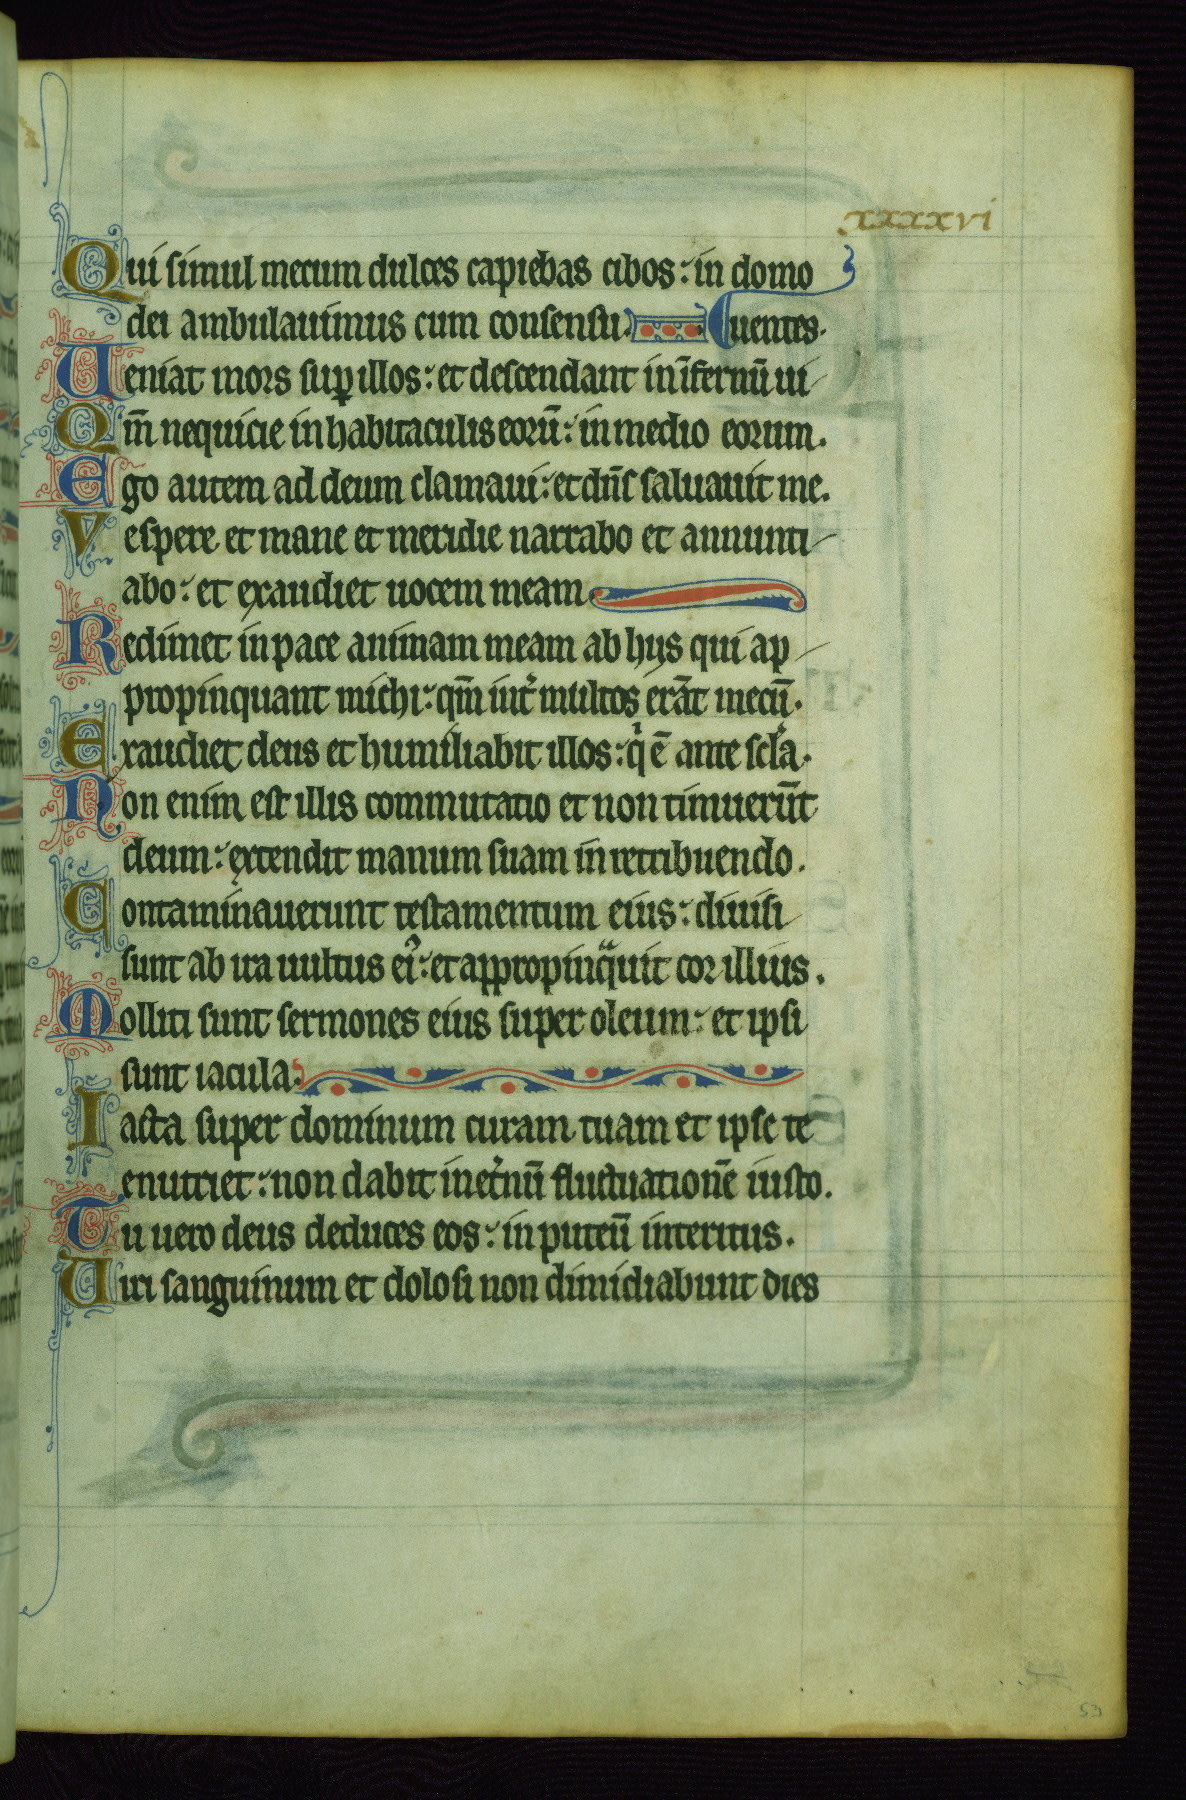 xxxxvi
Qui simul mecum dulces capiebas cibos: in domo
dei ambulauimus cum consensu. uentes.
Ueniat mors sup illos: et descendant in īfernū ui
Qm̄ nequicie in habitaculis eorū: in medio eorum.
Ego autem ad deum clamaui: et dn̄s saluauit me.
Vespere et mane et meridie narrabo et annunti
abo: et exaudiet uocem meam
Redimet in pace animam meam ab hijs qui ap
propinquant michi: qm̄ int̾ multos erāt mecū.
Exaudiet deus et humiliabit illos: qͥ ē ante scl̾a.
Non enim est illis commutatio et non timuerūt
deum: extendit manum suam in retribuendo.
Contaminauerunt testamentum eius: diuisi
sunt ab ira uultus ei᾽: et appropinqᵃuit cor illius.
Molliti sunt sermones eius super oleum: et ipsi
sunt iacula.
Iacta super dominum curam tuam et ipse te
enutriet: non dabit in et̾nū fluctuationē iusto.
Tu uero deus deduces eos: in puteū interitus.
Uiri sanguinum et dolosi non dimidiabunt dies
53